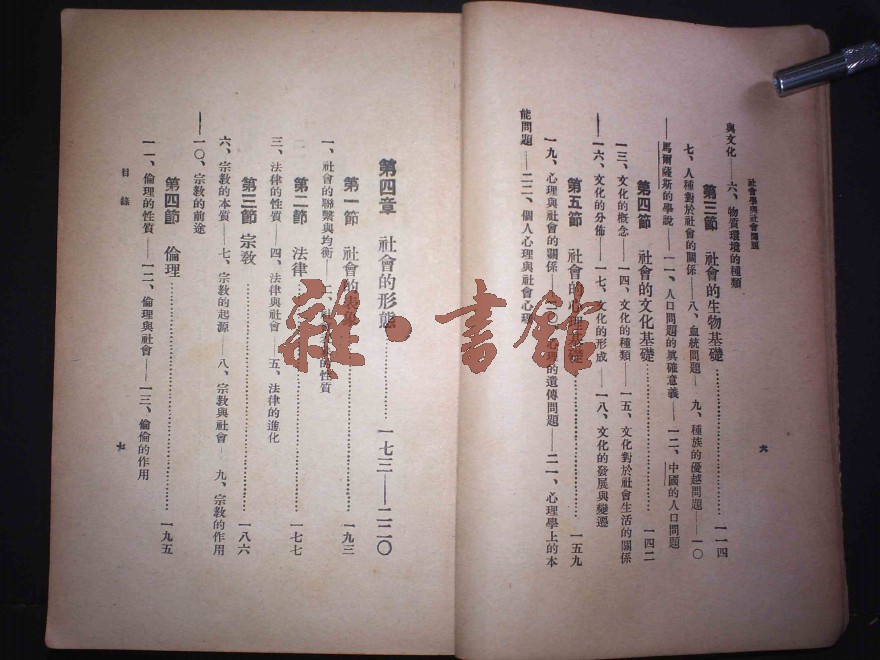 社會學與社會問題
與文化——六、物質環境的種類
第三節 社會的生物基礎 一一四
七、人種對於社會的關係——八、血統問題——九、種族的優越問題——一〇
——馬爾薩斯的學說——一一、人口問題的眞確意義——一二、中國的人口問題
第四節 社會的文化基礎 一四二
一三、文化的概念——一四、文化的種類——一五、文化對於社會生活的關係
——一六、文化的分佈——一七、文化的形成——一八、文化的發展與變遷
第五節 社會的心理基礎 一五九
一九、心理與社會的關係——二〇、心理的遺傳問題——二一、心理學上的本
能問題——二二、個人心理與社會心理
六
第四章 社會的形態 一七三——二二〇
第一節 社會的 一九三
一、社會的聯繫與均衡——二、的性質
第二節 法律 一七七
三、法律的性質——四、法律與社會——五、法律的進化
第三節 宗教 一八六
六、宗教的本質——七、宗教的起源——八、宗教與社會——九、宗教的作用
——一〇、宗教的前途
第四節 倫理 一九五
一一、倫理的性質——一二、倫理與社會——一三、倫倫的作用
目錄
七
雜·書館